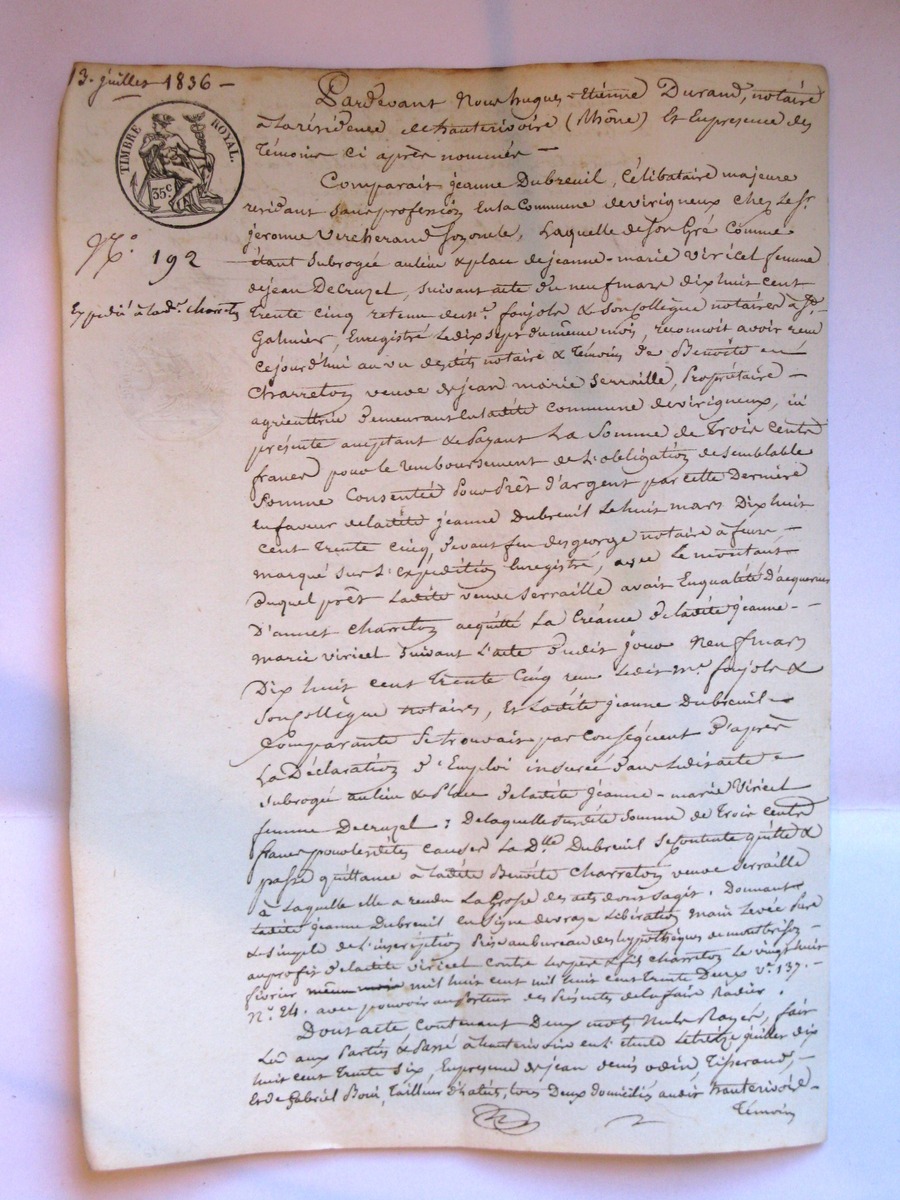 13. juillet 1836 -
TIMBRE ROYAL.
35c.
N.° 192
Expédié à lad.e charreton
Pardevant Nous hugues-Etienne Durand, notaire
à la résidence de hauterivoire (Rhône) Et En presence des
Témoins Ci après nommés -
Comparait jeanne Dubreuil, Célibataire majeure
residant sans profession En la Commune de virigneux chez le sr.
jerome Vercherand, Laquelle de son Gré Comme
étant Subrogée au lieu & place de jeanne-marie Viricel femme
de jean Decruzel, suivant acte du neuf mars dix huit cent
trente cinq retenu de m.e foujols & son Collègue notaires à St.
Galmier, Enregistré le dix sept du même mois, reconnoit avoir reçu
Cejourd'hui au vu desdits notaire & Témoins de Benoite
Charreton veuve de jean marie Serraille, Propriétaire -
agricultrice demeurant En ladite commune de virigneux, ici
présente acceptant & Payant La Somme de Trois Cents
francs pour le remboursement de L'obligation de semblable
Somme Consentie Pour Prêt d'argent par cette Dernière
en faveur de ladite jeanne Dubreuil le huit mars Dix huit
cent trente cinq, devant feu desgeorge notaire à feurs, -
marqué sur L'Expédition Enregistré, avec Le montant
duquel prêt Ladite veuve Serraille avait En qualité d'acquereur
D'annet Charreton acquitté La Créance de ladite jeanne -
marie viricel suivant l'acte dudit jour neuf mars
Dix huit cent trente cinq reçu ledit m.e foujols &
Son Collègue notaires, Et Ladite jeanne Dubreuil -
Comparante Se trouvait par Conséquent D'après
La Déclaration d'Emploi inserée dans ledit acte
Subrogé au lieu & Place de ladite jeanne-marie Viricel
femme Decruzel; De laquelle susdite Somme de Trois Cents
francs pour lesdites Causes La D.lle Dubreuil Se Contente quitte &
passe quittance à ladite Benoite Charreton veuve Serraille
à Laquelle Elle a rendu La Grosse des actes dont s'agit. Donnant
Ladite jeanne Dubreuil En Signe de vraye Libération main Levée Pure
& simple de L'inscription Prise au bureau des hypothèques de montbrison -
au profit de ladite Viricel contre les père & fils charreton le vingt huit
février même mois mil huit cent mil huit cent trente Deux V.e 137. -
N.° 24. avec pouvoir au Porteur des Présentes de la faire Radier.
Dont acte Contenant Deux mots Nuls Rayés, fait
Lu aux Parties & Passé à hauterivoire en l'étude le treize juillet dix
huit cent trente Six, En presence de jean denis odin, Tisserand, -
Et de Gabriel Boui, Tailleur d'habits, tous Deux domiciliés audit hauterivoire -
Témoins